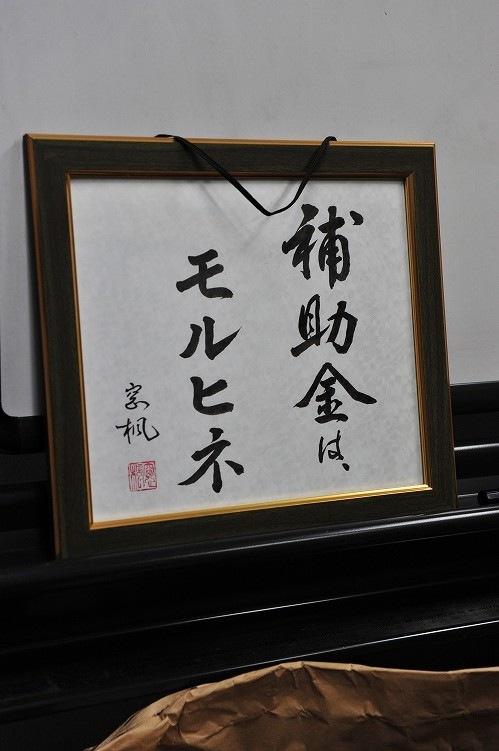 補助金は、
モルヒネ
宗楓